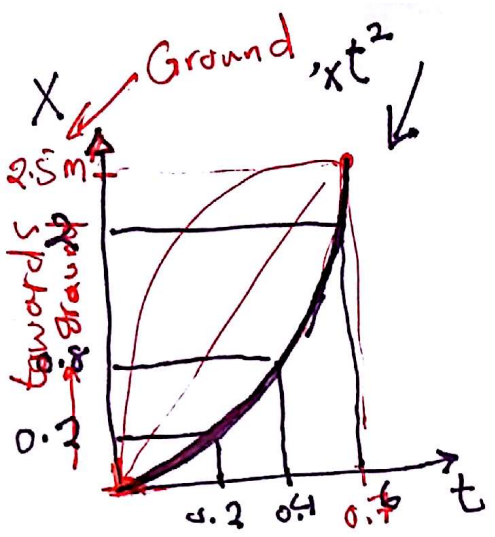 Ground
X
xt²
2.5 m
towards
ground
0.2
0.2
0.4
t